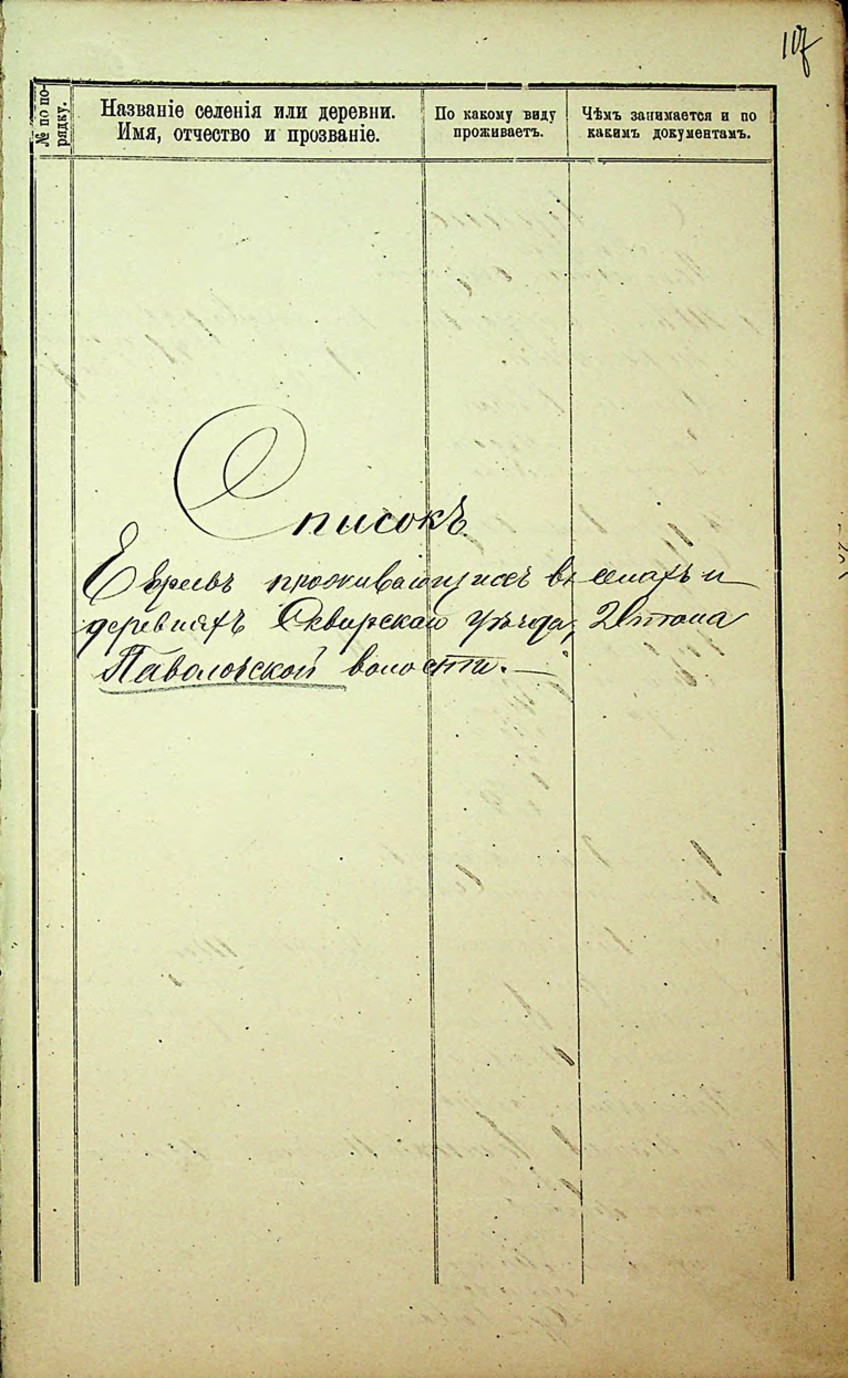 107
№ по по-
рядку.
Названіе селенія или деревни.
Имя, отчество и прозваніе.
По какому виду
проживаетъ.
Чѣмъ занимается и по
какимъ документамъ.
Списокъ
Евреевъ проживающихъ въ селахъ и
деревняхъ Сквирскаго уѣзда, 2 стана
Паволочской волости.—